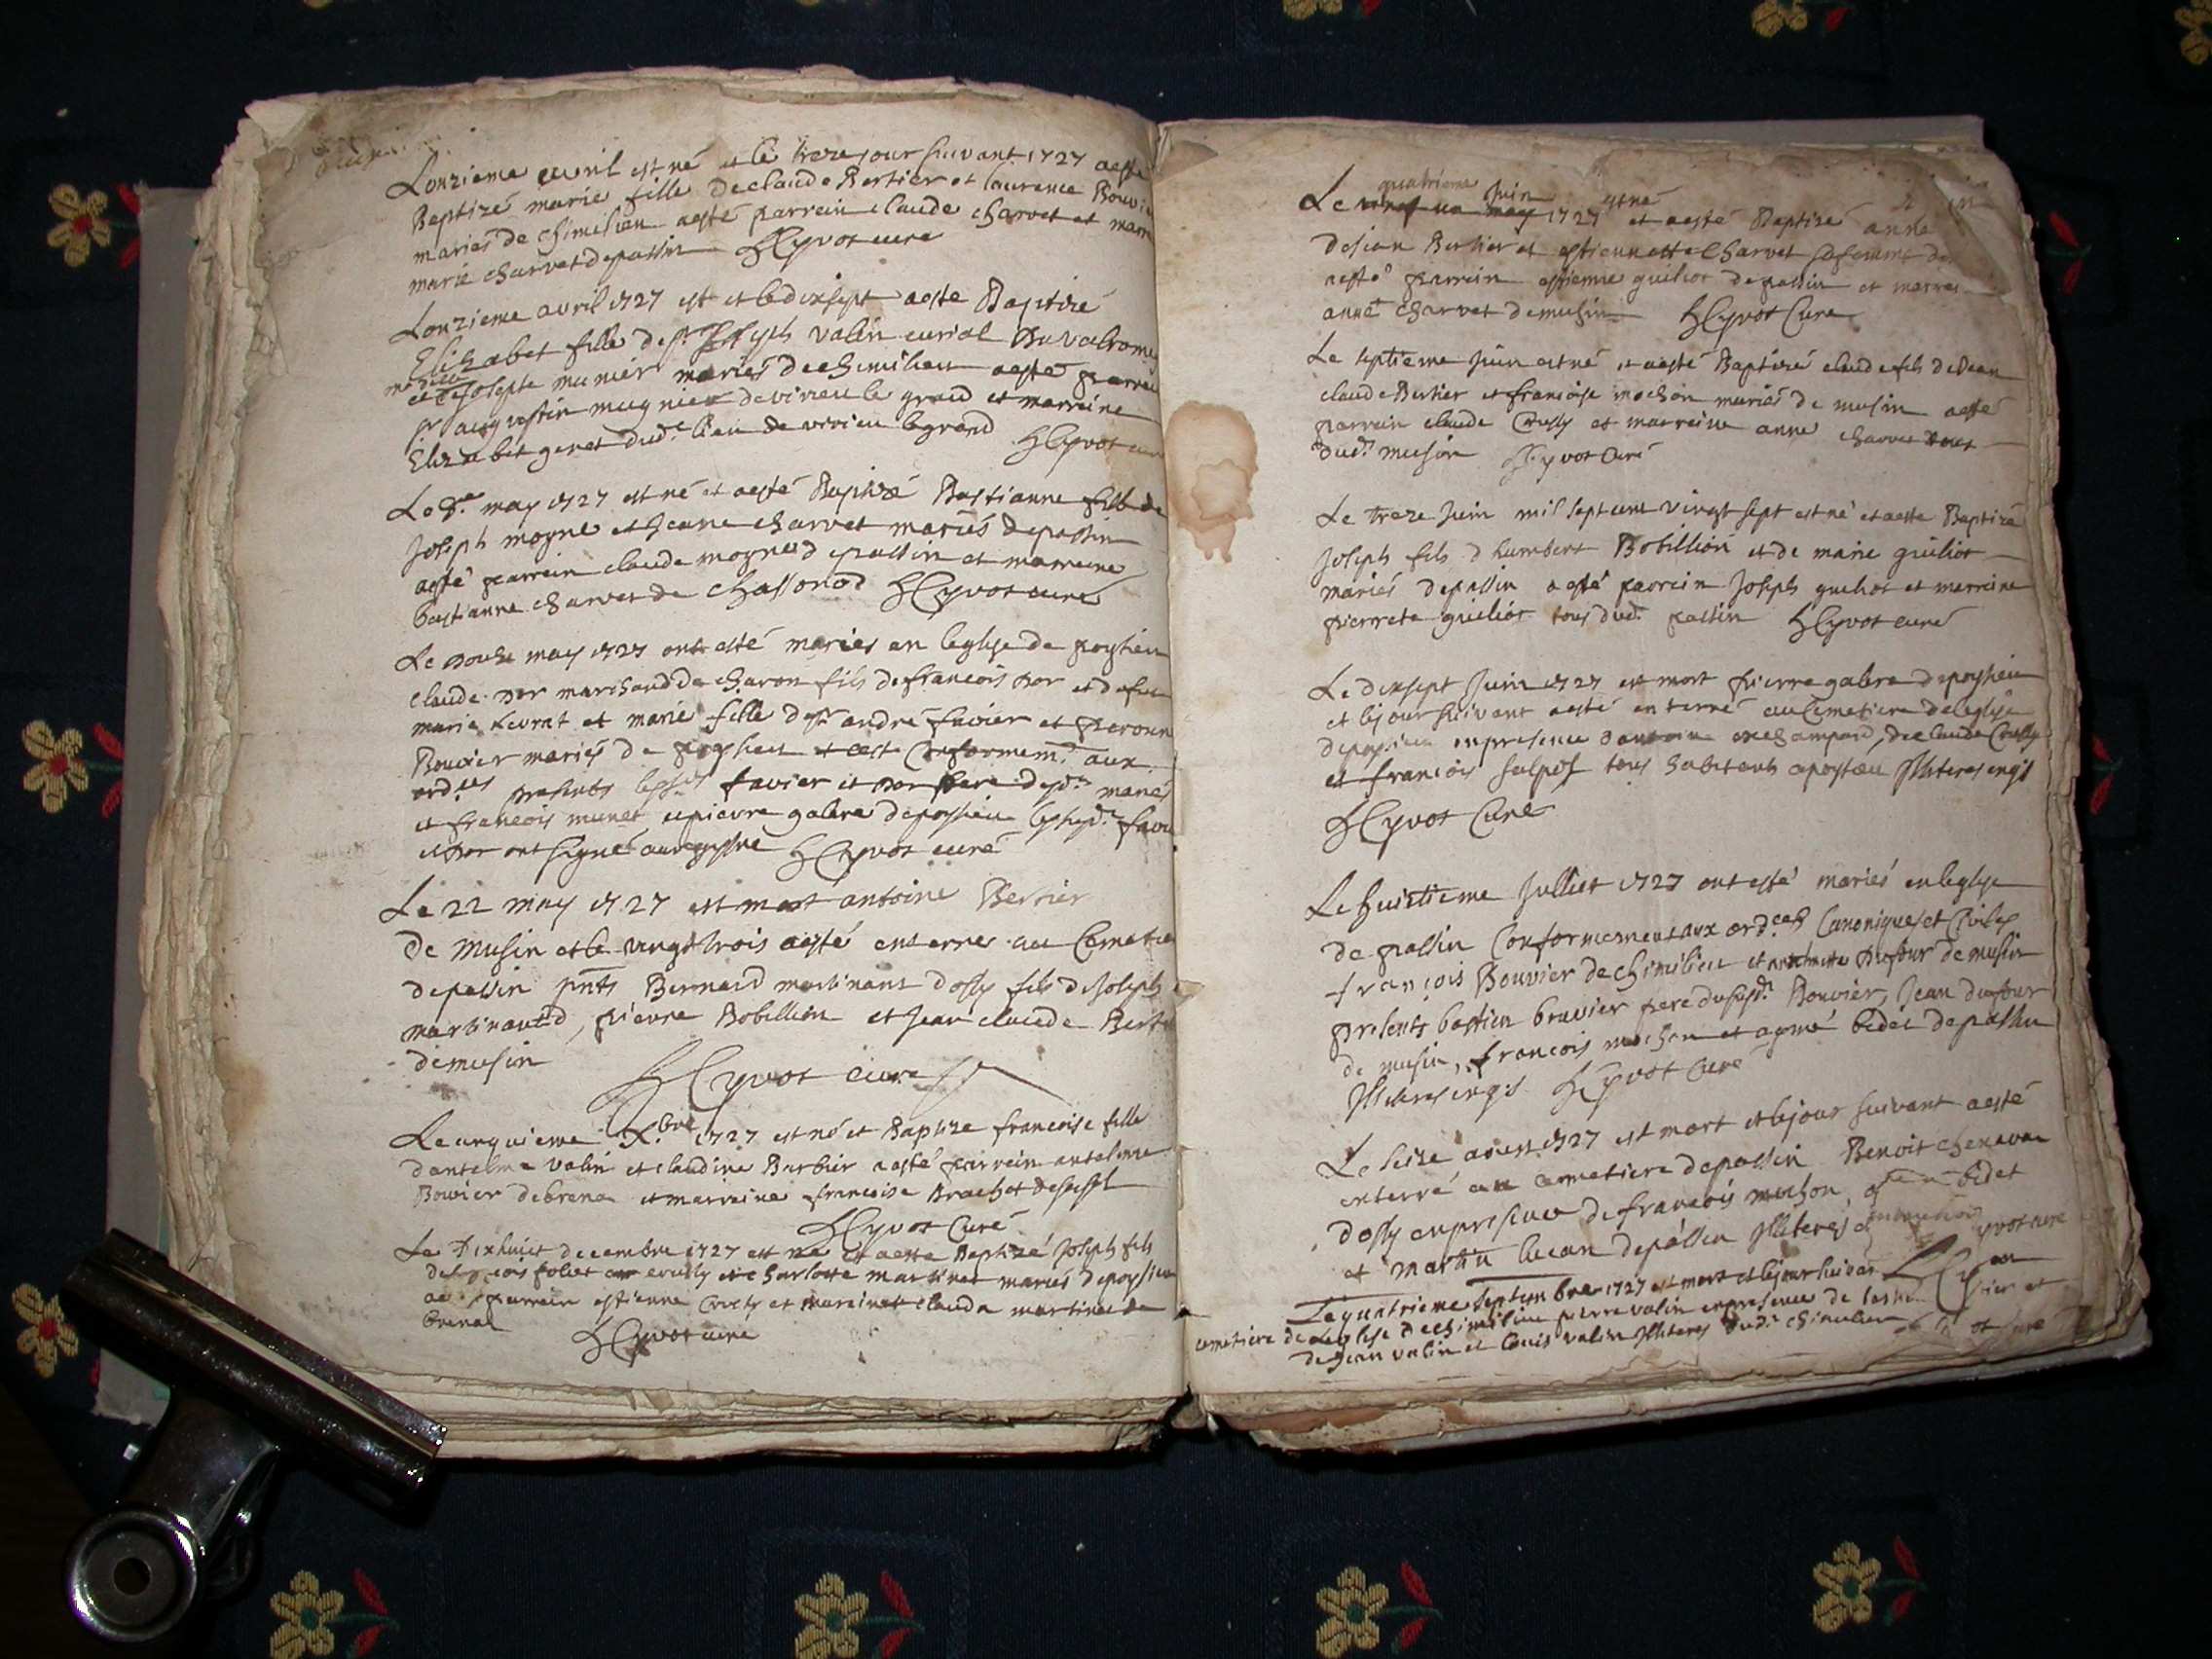 Lonzieme avril est né et le treze jour suivant 1727 aesté
Baptizé marie fille de claude Bertier et laurence Bouvie
mariés de chimilien aesté parrein claude charvet et marre
marie charvet depassin HCyvot cure
Lonzieme avril 1727 est et le dixsept aeste Baptizé
Elizabet fille de sr Joseph valin curial Duvalrome
et delle Josepte munier mariés de chimilien aesté parrei
sr augustin mugnier de virieu le grand et marreine
Elizabet genet dudt lieu de virieu legrand HCyvot cur
Le may 1727 est né et aesté Baptizé Bastianne fille de
Joseph moyne et Jeanne charvet mariés depassin
aesté parrein claude moyne depassin et marreine
bastianne charvet de chassonod HCyvot curé
Le douze may 1727 ont esté mariés en leglise de poysieu
claude dor marchand de charon fils de francois dor et defun
marie Levrat et marie fille de sr andré favier et peronn
Bouvier mariés de poysieu et cest Conformemt aux
ordces presents favier et dor pere desdts mariés
et francois munet et pierre galere depoysieu favi
et dor ont signé HCyvot curé
Le 22 may 1727 est mort antoine Bertier
de musin et le vingt trois aesté enterre au Cemetie
depassin pnts Bernard martinant dossy fils de Joseph
martinand, pierre Bobillion et Jean claude Berti
demusin
HCyvot cure
Le unquieme Xbre 1727 est né et Baptize francoise fille
dantelme valin et claudine Barbier aesté parrein antelme
Bouvier debrena et marreine francoise Brachet deseissel
HCyvot Curé
Le Dixhuict decembre 1727 est né et aesté Baptizé Joseph fils
de francois folliet crusly et charlotte martinet mariés depoysieu
parrein estienne crusly et mareinet claude martinet de
brenaz HCyvot curé
Le quatrieme Juin 1727 est né et aesté Baptizé anne
de Jean Bertier et estiennette Charvet safemme de
aesté parrein estienne guilliot de passin et marrei
anne charvet demusin HCyvot Cure
Le septieme Juin est né et aesté Baptizé claude fils de Jean
claude Bertier et francoise mochon mariés de musin aesté
parrein claude Crusly et marreine anne charvet tous
dudt musin HCyvot Curé
Le treze Juin mil sept cent vingt sept est né et aeste Baptizé
Joseph fils dhumbert Bobillion et de marie guilliot
mariés depassin aesté parrein Joseph guilliot et merreine
pierrete guilliot tous dudt passin HCyvot curé
Le dixsept Juin 1727 est mort pierre galere depoysieu
et lejour suivant aesté enterré au Cemetiere deleglise
depoysieu en presence dantoine de claude Crusly
et francois tous habitants apoysieu Illiteres enqis
HCyvot Curé
Le huictieme Julliet 1727 ont esté mariés en leglise
de passin Conformement aux ordces Canoniques et Civiles
françois Bouvier de chimilien et Dufour de musin
presents bastien bouvier pere dususdt Bouvier, Jean dufour
de musin, francois mochon et aymé bidet depassin
Illiteres enqis HCyvot Curé
Le seize aoust 1727 est mort et lejour suivant aesté
enterré au cemetiere depassin Benoit chenavae
dossy enpresence de francois mochon, bidet
et martin lucan depassin Illiteres yvot cure
Lequatrieme Septembre 1727 est mort et lejour suivant
cemetiere de leglise de chimilien pierre valin enpresence de
de Jean valin et Louis valin Illiteres dudt chimilien